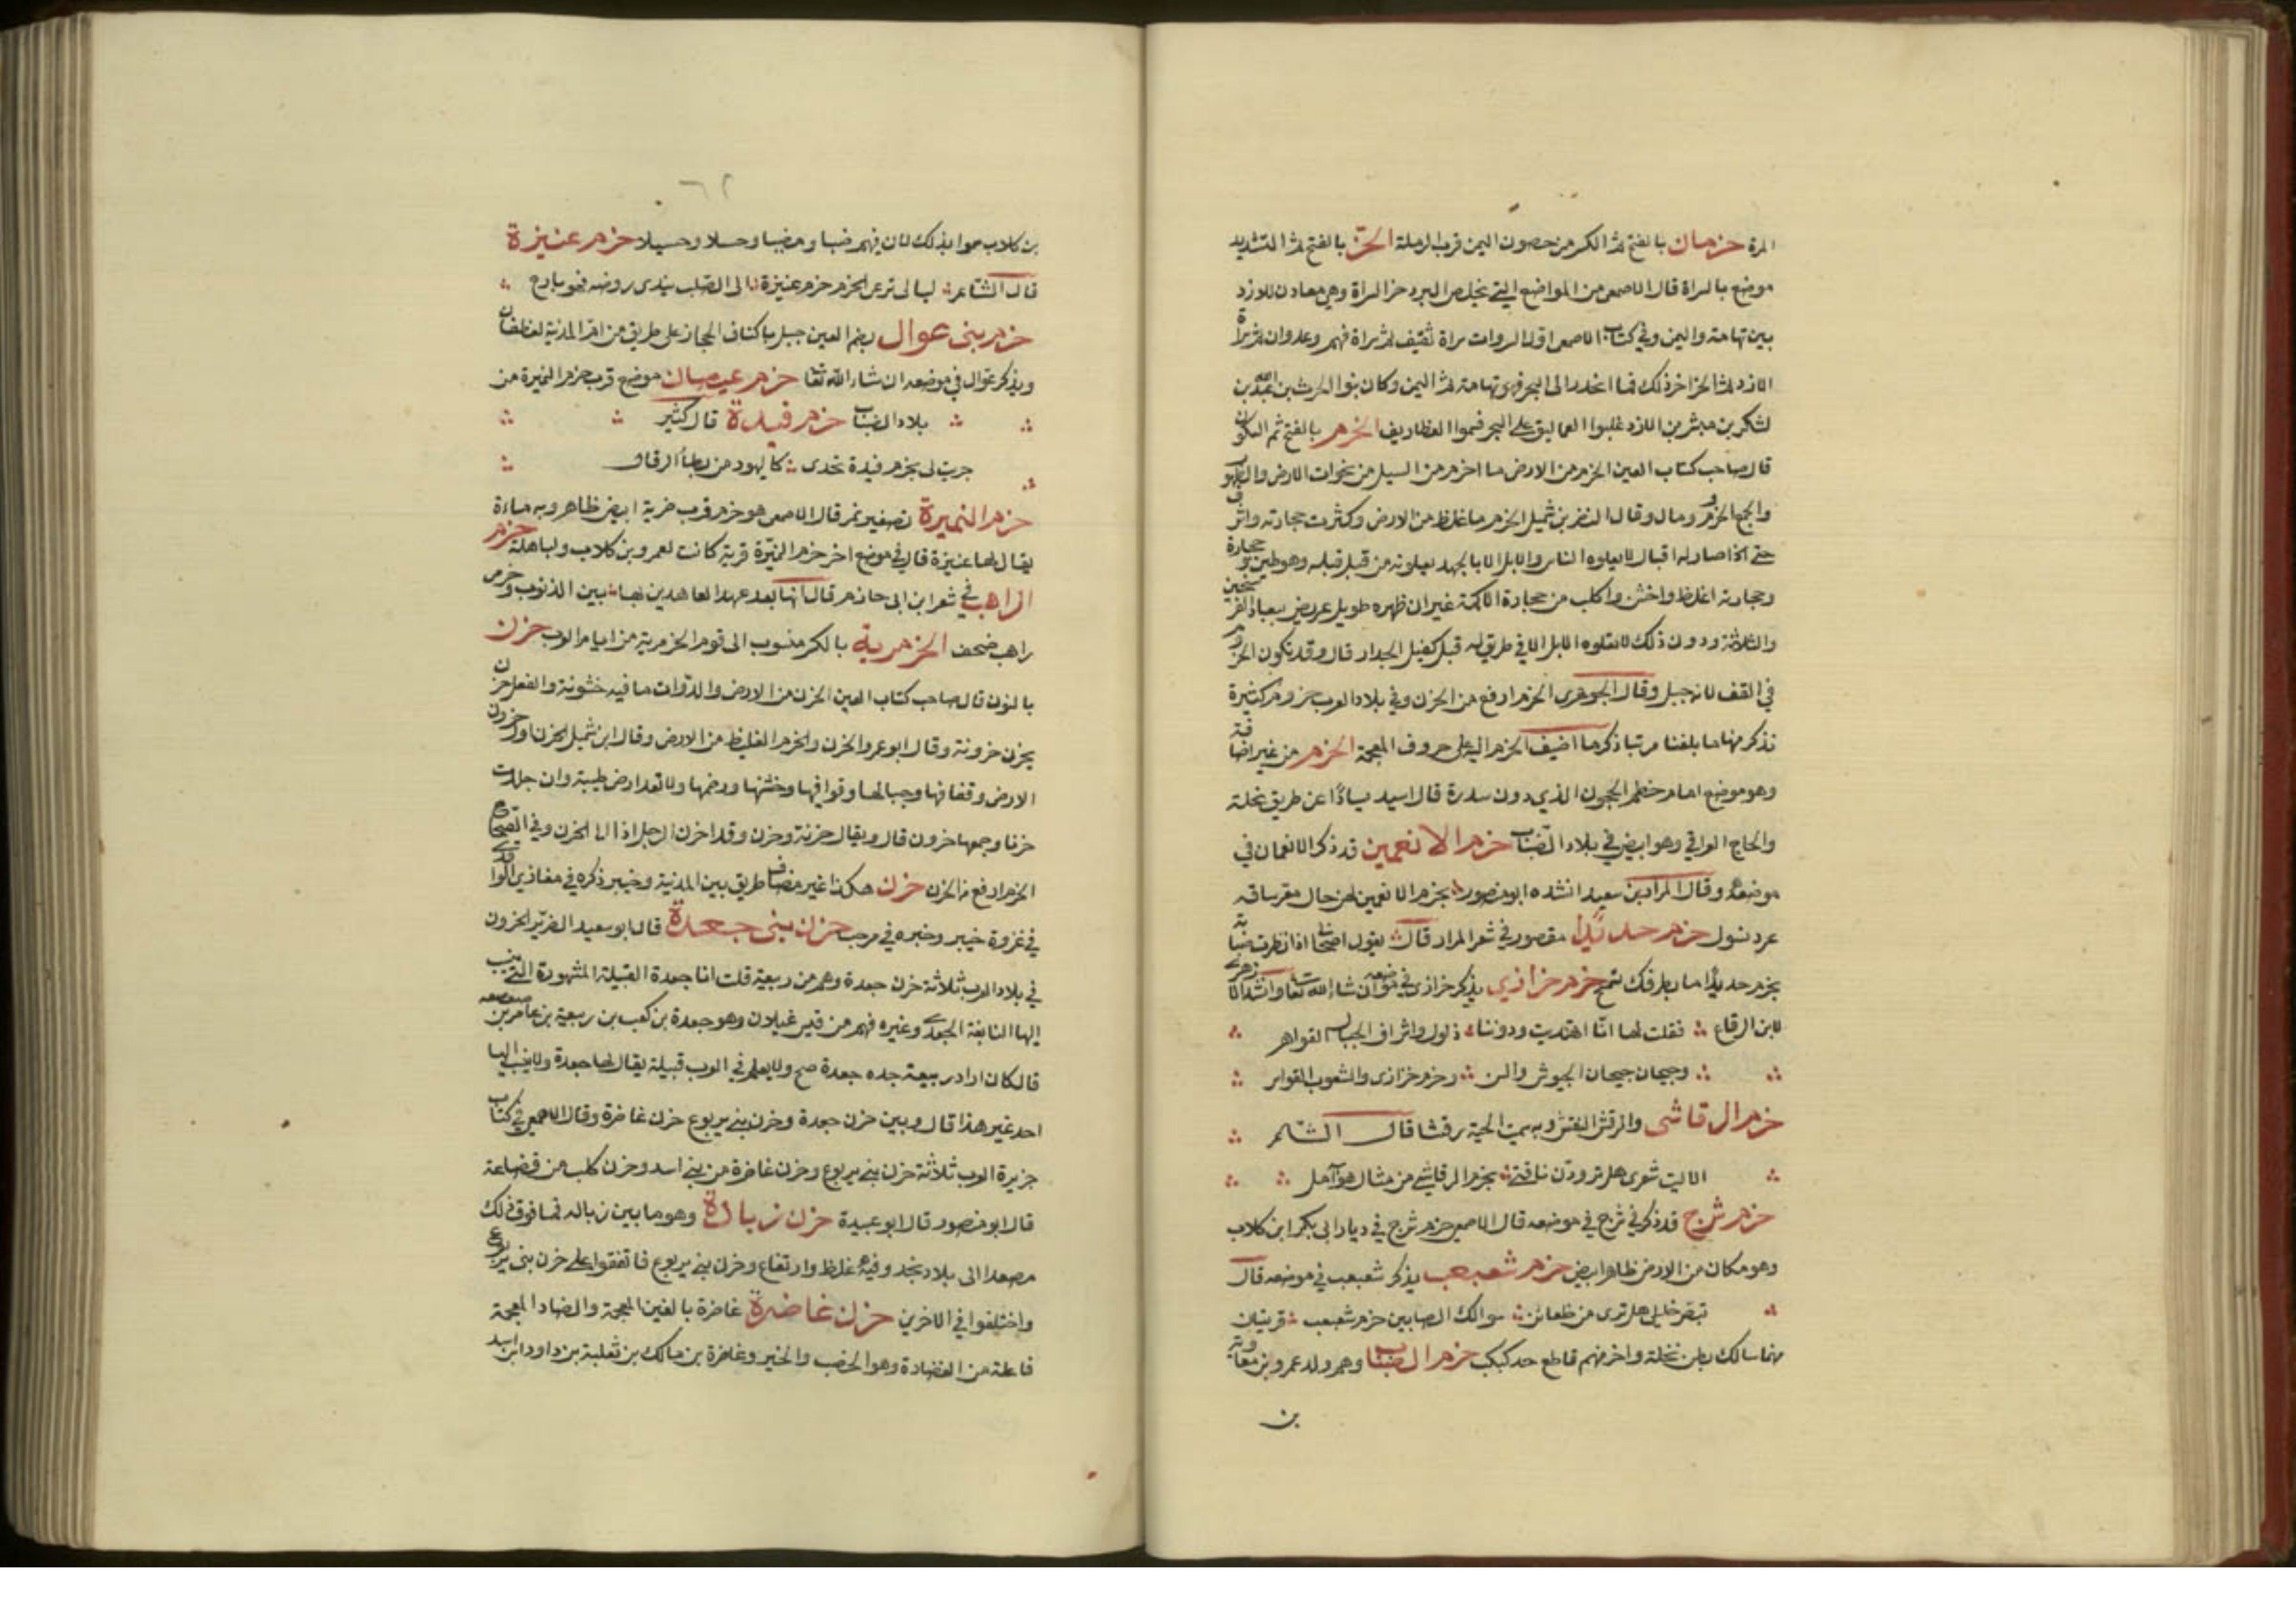 المرة حزمان بالفتح ثم الكسر من حصون اليمن قرب الدملة الحز بالفتح ثم التشديد
موضع بالسراة قال الاصمعي من المواضع التي يخلص البرد حز السراة وهي معادن للازد
بين تهامة واليمن وفي كتاب الاصمعي اول السروات سراة ثقيف ثم سراة فهم وعدوان ثم سراة
الازد ثم الحز اخر ذلك فما انحدر الى البحر فهو تهامة ثم اليمن وكان بنو الحرث بن عبد الله بن
يشكر بن مبشر من الازد غلبوا العماليق على فسموا الغطاريف الحزم بالفتح ثم السكون
قال صاحب كتاب العين الحزم من الارض ما احزم من السيل من نجوات الارض والظهور
والجمع الحزوم ومال وقال النضر بن شميل الحزم ما غلظ من الارض وكثرت حجارته واشرف
حتى اذا صار له اقبال لا يعلوه الناس والابل الا بالجهد يعلونه من قبل قبله وهو طين وحجارة
وحجارته اغلظ واخشن واكلب من حجارة الاكمة غير ان ظهره طويل عريض ينقاد الفرسخين
والثلاثة ودون ذلك لا تعلوه الابل الا في طريق له قبل كقبل الجدار قال وقد يكون الحزم
في القف لانه جبل وقال الجوهري الحزم ارفع من الحزن وفي بلاد العرب حزوم كثيرة
نذكر منها ما بلغنا مرتبا ذكر ما اضيف الحزم اليه على حروف المعجمة الحزم من غير اضافة
وهو موضع امام خطم الحجون الذي دون سدرة قال اسيد يسارًا عن طريق نخلة
والحاج العراقي وهو ابيض في بلاد الضباب حزم الانعمين قد ذكر الانعمان في
موضعه وقال المرار بن سعيد انشده ابو منصور بحزم الانعمين لهن حاد معر ساقه
غرد نسول حزم حديدا مقصور في شعر المرار قال يقول اصحابي اذا نظرت صبابة
بحزم حديدا ما بطرفك تسمح حزم خزازي يذكر خزازي في موضعه ان شاء الله تعا وانشد الازهري
لابن الرقاع فقلت لها انى اهتديت ودوننا دلوك واشراف الجبال القواهر
وجيحان جيحان الجيوش والس وحزم خزازى والشعوب القواسر
حزم الرقاشى والرقش النقش وبه سميت الحية رقشا قال الشاعر
الا ليت شعرى هل ترودن ناقتي بحزم الرقاشي من مثال هوآمل
حزم شرج قد ذكر في شرج في موضعه قال الاصمعي حزم شرج في ديار ابى بكر ابن كلاب
وهو مكان من الارض ظاهر ابيض حزم شعبعب يذكر شعبعب في موضعه قال
تبصر خليلى هل ترى من ظعائن سوالك الصبا بين حزم شعبعب فريقان
منهما سالك بطن نخلة واخر منهم قاطع حد كبكب حزم الضباب وهم ولد عمرو بن معاوية
بن
٦٢
بن كلاب سموا بذلك لان فيهم ضبا ومضبا وحسلا وحسيلا حزم عنيزة
قال الشاعر ليالى ترعى الحزم حزم عنيزة الى الصلب يندى روضه فهو بارح
حزم بنى عوال بضم العين جبل باكناف الحجاز على طريق من ام المدينة لغطفان
ويذكر عوال في موضعه ان شاء الله تعا حزم عيصان موضع قرب حزم النميرة من
بلاد الضباب حزم فيدة قال كثير
حزيت لى بحزم فيدة تحدى كاليهود من نطاة الرقال
حزم النميرة تصغير نمر قال الاصمعي هو حزم قرب ضرية ابيض ظاهر وبه ماءة
يقال لها عنيزة قال في موضع اخر حزم النميرة قرية كانت لعمرو بن كلاب ولباهلة حزم
الراهب في شعر ابن ابى حازم قال انها بعد عهد العاهدين بها بين الذنوب وحزمى
راهب ضحف الحزمرية بالكسر منسوب الى قوم الحزمرية من ايام العرب حزن
بالنون قال صاحب كتاب العين الحزن من الارض والدواب ما فيه خشونة والفعل حزن
يحزن حزونة وقال ابو عمرو الحزن والحزم الغليظ من الارض وقال ابن شميل الحزن اول حزون
الارض وقفافها وجبالها وقوافيها وخشنها ورضمها ولا تعد ارض طيبة وان جلدت
حزنا وجمعها حزون قال ويقال حزنة وحزن وقد احزن الرجل اذا الحزن وفي الصحاح
الحزم ارفع من الحزن حزن هكذا غير مضاف طريق بين المدينة وخيبر ذكره في مغازي الواقدي
في غزوة خيبر وخبره في مرحب حزن بنى جعدة قال ابو سعيد الضرير الحزون
في بلاد العرب ثلاثة حزن جعدة وهم من ربيعة قلت انا جعدة القبيلة المشهورة التي ينسب
اليها النابغة الجعدي وغيره فهم من قيس غيلان وهو جعدة بن كعب بن ربيعة بن عامر بن صعصعة
قال كان اراد ربيعة جده جعدة صح ولا يعلم في العرب قبيلة يقال لها جعدة ولا ينسب اليها
احد غير هذا قال وبين حزن جعدة وحزن بني يربوع حزن غاضرة وقال الاصمعي في كتاب
جزيرة العرب ثلاثة حزن بني يربوع وحزن غاضرة من بني اسد وحزن كلب من قضاعة
قال ابو منصور قال ابو عبيدة حزن زبالة وهو ما بين زباله فما فوق ذلك
مصعدا الى بلاد نجد وفيه غلظ وارتفاع وحزن بني يربوع فاتفقوا على حزن بنى يربوع
واختلفوا في الاخرين حزن غاضرة غاضرة بالغين المعجمة والضاد المعجمة
فاعلة من الغضارة وهو الخصب والخير وغاضرة بن مالك بن ثعلبة بن داود ابن اسد